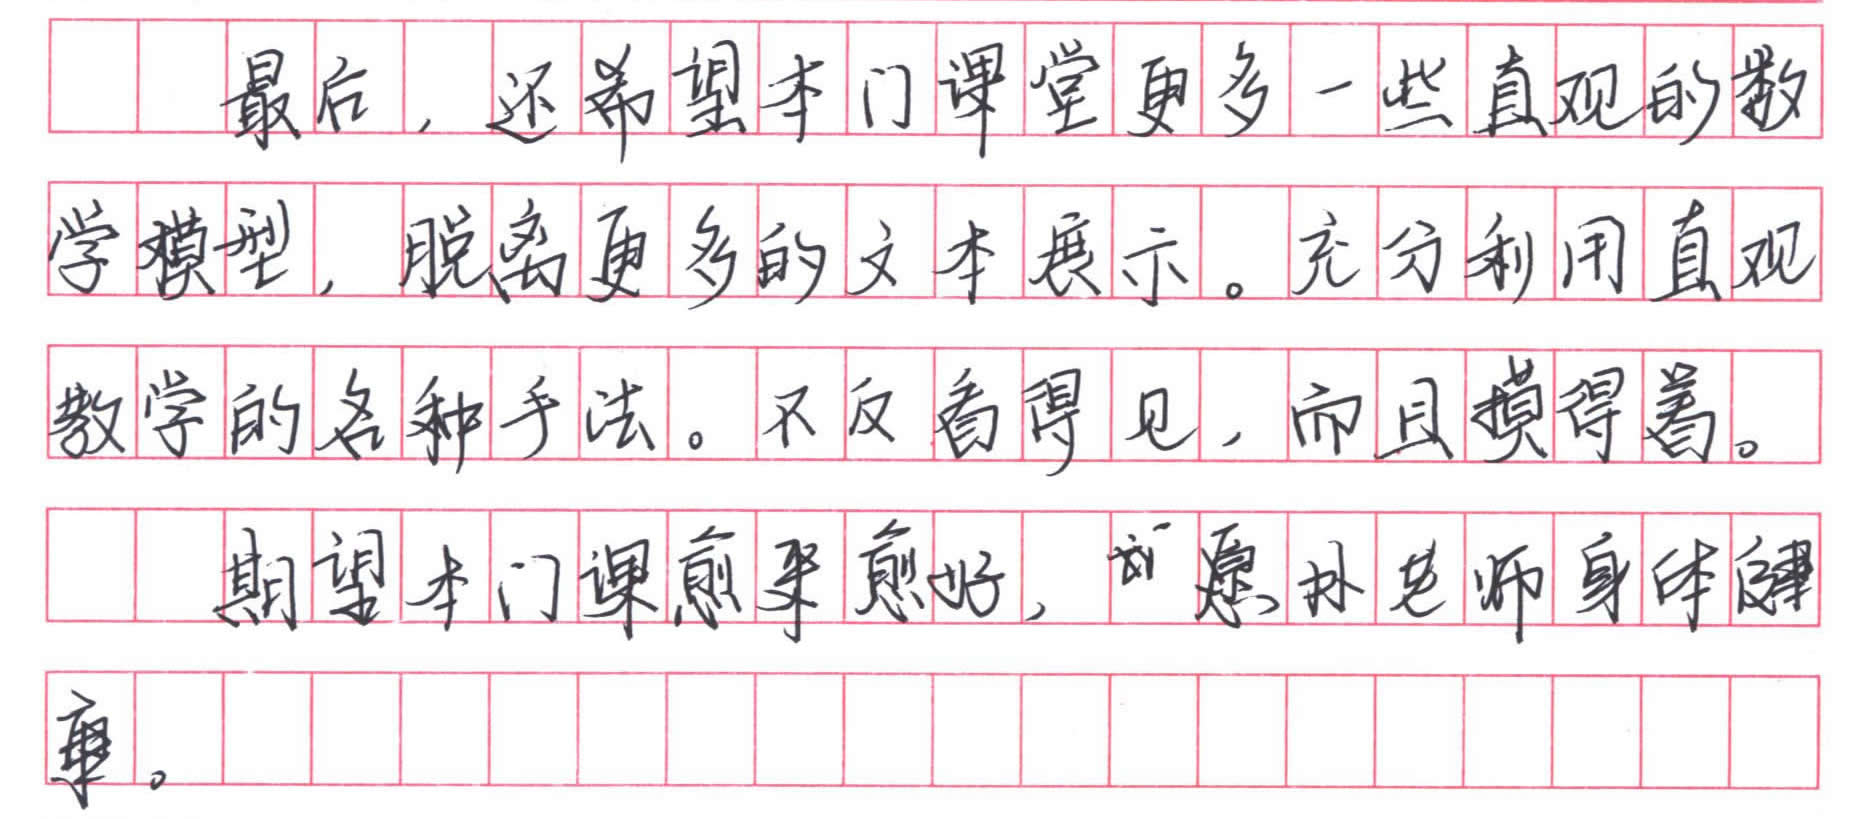 最后，还希望本门课堂更多一些直观的数
学模型，脱离更多的文本展示。充分利用直观
教学的各种手法。不反看得见，而且摸得着。
期望本门课愈来愈好，愿老师身体健
康。